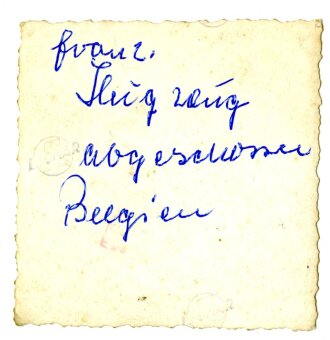 franz.
Flug zeug
abgeschossen
Belgien